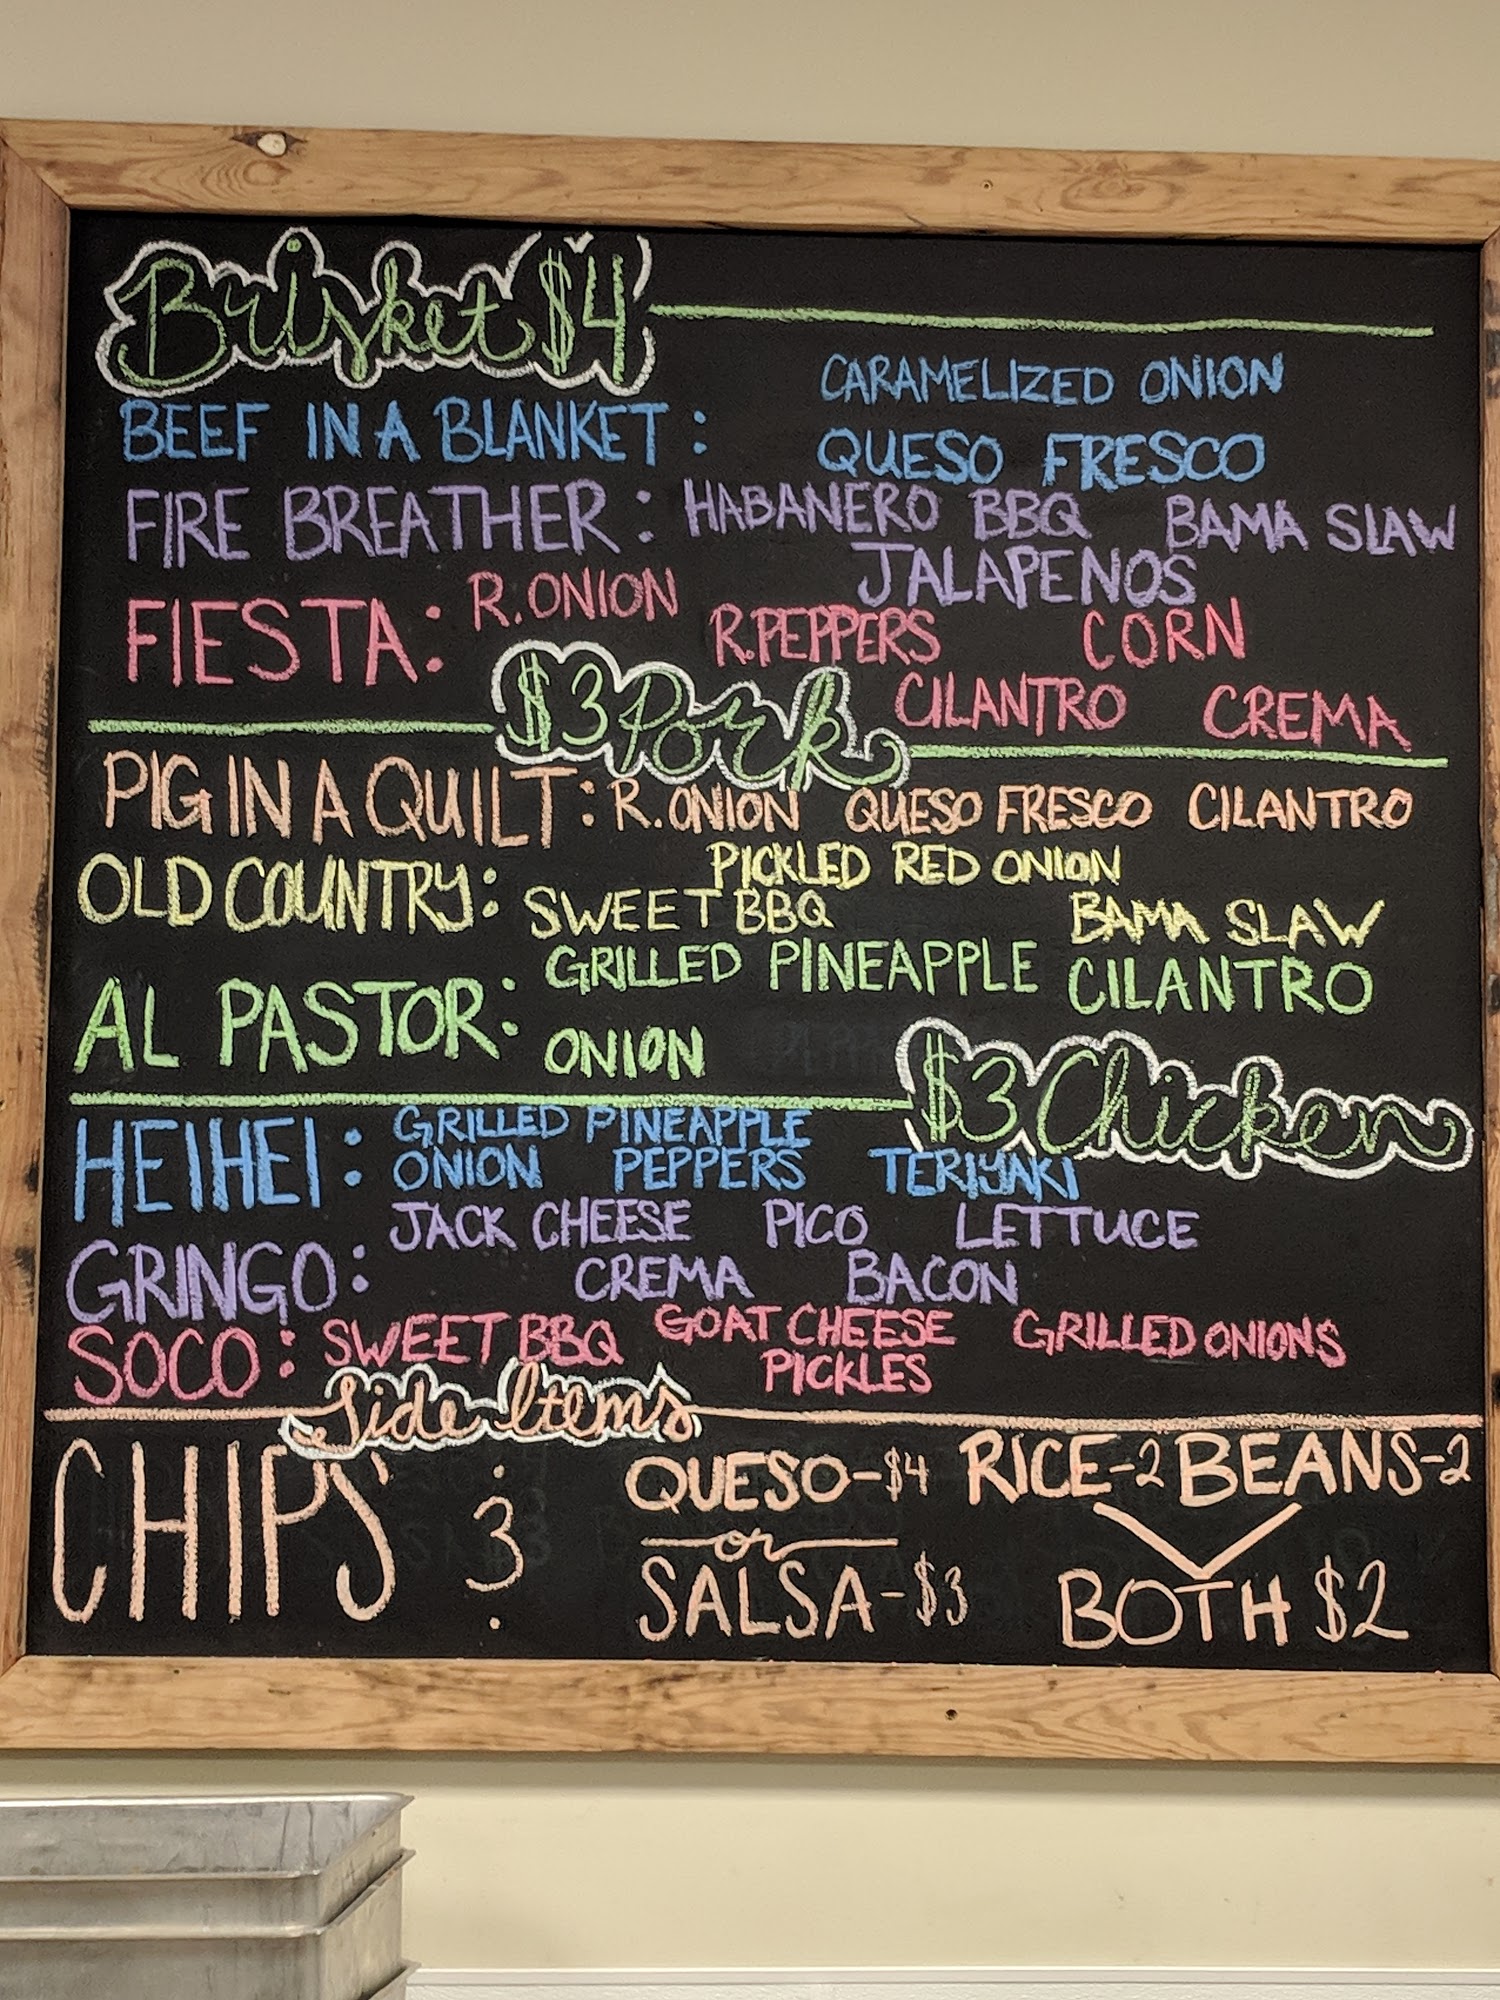 Brisket $4
CARAMELIZED ONION
BEEF IN A BLANKET : QUESO FRESCO
FIRE BREATHER : HABANERO BBQ BAMA SLAW
JALAPENOS
FIESTA : R. ONION R. PEPPERS CORN
CILANTRO CREMA
$3 Pork
PIG IN A QUILT : R. ONION QUESO FRESCO CILANTRO
PICKLED RED ONION
OLD COUNTRY : SWEET BBQ BAMA SLAW
GRILLED PINEAPPLE CILANTRO
AL PASTOR : ONION
$3 Chicken
GRILLED PINEAPPLE
HEIHEI : ONION PEPPERS TERIYAKI
JACK CHEESE PICO LETTUCE
GRINGO : CREMA BACON
SOCO : SWEET BBQ GOAT CHEESE GRILLED ONIONS
PICKLES
Side Items
CHIPS : 3 : QUESO-$4 RICE-2 BEANS-2
or
SALSA-$3 BOTH $2